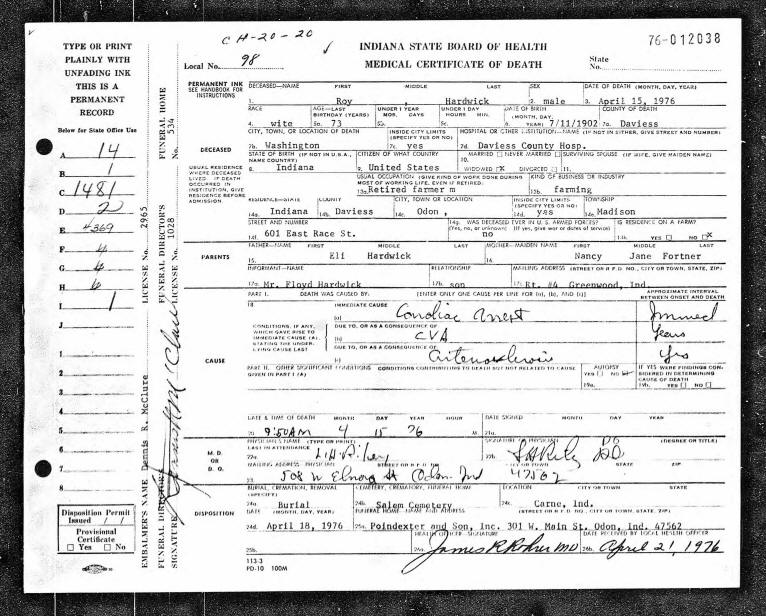 CH-20-20
76-012038
INDIANA STATE BOARD OF HEALTH
MEDICAL CERTIFICATE OF DEATH
Local No. 98
State No.
TYPE OR PRINT
PLAINLY WITH
UNFADING INK
THIS IS A
PERMANENT
RECORD
Below for State Office Use
A 14
B 1
C 1481
D 2
E 4369
F 4
G 4
H 6
I 1
J
1
2
3
4
5
6
7
8
Disposition Permit
Issued / /
Provisional
Certificate
Yes No
EMBALMER'S NAME Dennis R. McClure LICENSE No. 2965
FUNERAL DIRECTOR'S SIGNATURE
FUNERAL DIRECTOR'S LICENSE No. 1028
FUNERAL HOME No. 534
PERMANENT INK
SEE HANDBOOK FOR
INSTRUCTIONS
DECEASED—NAME FIRST MIDDLE LAST SEX DATE OF DEATH (MONTH, DAY, YEAR)
1. Roy Hardwick 2. male 3. April 15, 1976
RACE AGE—LAST BIRTHDAY UNDER 1 YEAR UNDER 1 DAY DATE OF BIRTH COUNTY OF DEATH
MOS. DAYS HOURS MIN. (MONTH, DAY, YEAR)
4. wite 5a. 73 5b. 5c. 6. 7/11/1902 7a. Daviess
DECEASED
CITY, TOWN, OR LOCATION OF DEATH INSIDE CITY LIMITS (SPECIFY YES OR NO) HOSPITAL OR OTHER INSTITUTION—NAME (IF NOT IN EITHER, GIVE STREET AND NUMBER)
7b. Washington 7c. yes 7d. Daviess County Hosp.
USUAL RESIDENCE
WHERE DECEASED
LIVED. IF DEATH
OCCURRED IN
INSTITUTION, GIVE
RESIDENCE BEFORE
ADMISSION.
STATE OF BIRTH (IF NOT IN U.S.A., NAME COUNTRY) CITIZEN OF WHAT COUNTRY MARRIED NEVER MARRIED SURVIVING SPOUSE (IF WIFE, GIVE MAIDEN NAME)
8. Indiana 9. United States 10. WIDOWED X DIVORCED 11.
USUAL OCCUPATION (GIVE KIND OF WORK DONE DURING MOST OF WORKING LIFE, EVEN IF RETIRED) KIND OF BUSINESS OR INDUSTRY
13a. Retired farmer m 13b. farming
RESIDENCE—STATE COUNTY CITY, TOWN, OR LOCATION INSIDE CITY LIMITS (SPECIFY YES OR NO) TOWNSHIP
14a. Indiana 14b. Daviess 14c. Odon, 14d. yes 14e. Madison
STREET AND NUMBER 14g. WAS DECEASED EVER IN U.S. ARMED FORCES? IS RESIDENCE ON A FARM?
(Yes, no, or unknown) (If yes, give war or dates of service)
14f. 601 East Race St. no YES NO X
PARENTS
FATHER—NAME FIRST MIDDLE LAST MOTHER—MAIDEN NAME FIRST MIDDLE LAST
15. Eli Hardwick 16. Nancy Jane Fortner
INFORMANT—NAME RELATIONSHIP MAILING ADDRESS (STREET OR R.F.D. NO., CITY OR TOWN, STATE, ZIP)
17a. Mr. Floyd Hardwick 17b. son 17c. Rt. #4 Greenwood, Ind.
PART I. DEATH WAS CAUSED BY: [ENTER ONLY ONE CAUSE PER LINE FOR (a), (b), AND (c)] APPROXIMATE INTERVAL BETWEEN ONSET AND DEATH
18. IMMEDIATE CAUSE
(a) Cardiac Arrest Immed
CONDITIONS, IF ANY,
WHICH GAVE RISE TO
IMMEDIATE CAUSE (A),
STATING THE UNDER-
LYING CAUSE LAST
DUE TO, OR AS A CONSEQUENCE OF
(b) CVA Years
DUE TO, OR AS A CONSEQUENCE OF
(c) Yrs
CAUSE
PART II. OTHER SIGNIFICANT CONDITIONS CONTRIBUTING TO DEATH BUT NOT RELATED TO CAUSE GIVEN IN PART I (A)
AUTOPSY YES NO 19a.
IF YES WERE FINDINGS CONSIDERED IN DETERMINING CAUSE OF DEATH 19b. YES NO
DATE & TIME OF DEATH MONTH DAY YEAR HOUR DATE SIGNED MONTH DAY YEAR
20. 9:50 AM 4 15 76 M. 21a.
M. D.
OR
D. O.
PHYSICIAN'S NAME (TYPE OR PRINT) LAST IN ATTENDANCE SIGNATURE OF PHYSICIAN (DEGREE OR TITLE)
22a. 22b. DO
MAILING ADDRESS PHYSICIAN STREET OR R.F.D. NO. CITY OR TOWN STATE ZIP
23. 508 W Elnora St Odon Ind 47562
DISPOSITION
BURIAL, CREMATION, REMOVAL (SPECIFY) CEMETERY, CREMATORY, FUNERAL HOME LOCATION CITY OR TOWN STATE
24a. Burial 24b. Salem Cemetery 24c. Carne, Ind.
DATE (MONTH, DAY, YEAR) FUNERAL HOME—NAME AND ADDRESS (STREET OR R.F.D. NO., CITY OR TOWN, STATE, ZIP)
24d. April 18, 1976 25a. Poindexter and Son, Inc. 301 W. Main St. Odon, Ind. 47562
HEALTH OFFICER—SIGNATURE DATE RECEIVED BY LOCAL HEALTH OFFICER
25b. 26a. James R Rohrer MD 26b. April 21, 1976
113-3
PD-10 100M